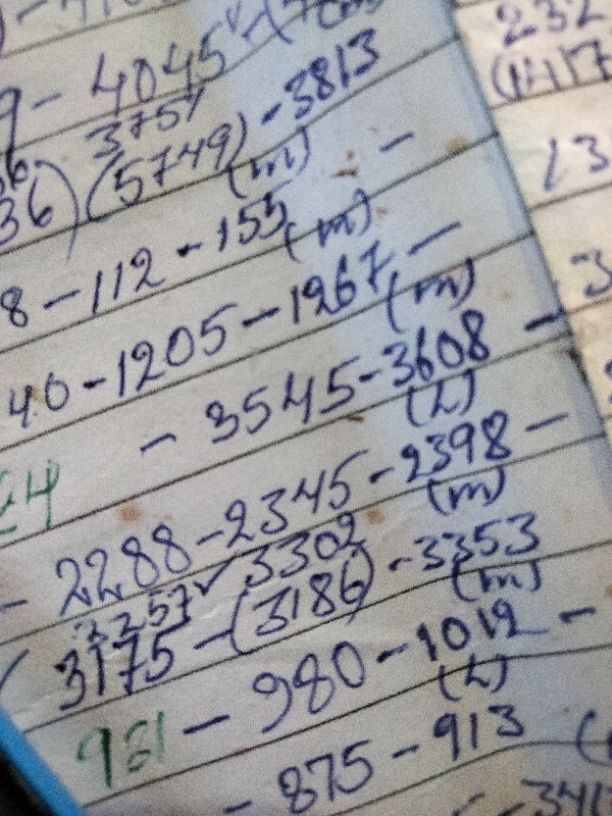 9 - 4045
3754
36) (5749) - 3813
(m) -
8 - 112 - 155
(m)
40 - 1205 - 1267 -
(m)
- 3545 - 3608 -
(L)
24
- 2288 - 2345 - 2398 -
(m)
3257✓ 3302
(3175 - (3186) - 3353
(m)
961 - 980 - 1012 -
(L)
- 875 - 913
232
(1417
13
3